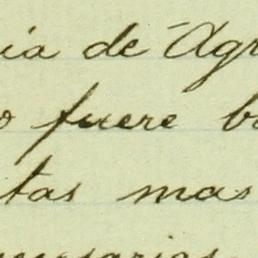 ia de Agr
o fuere b
tas mas